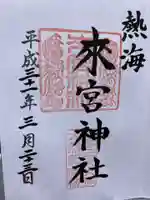 熱海
來宮神社
平成三十一年三月二十三日